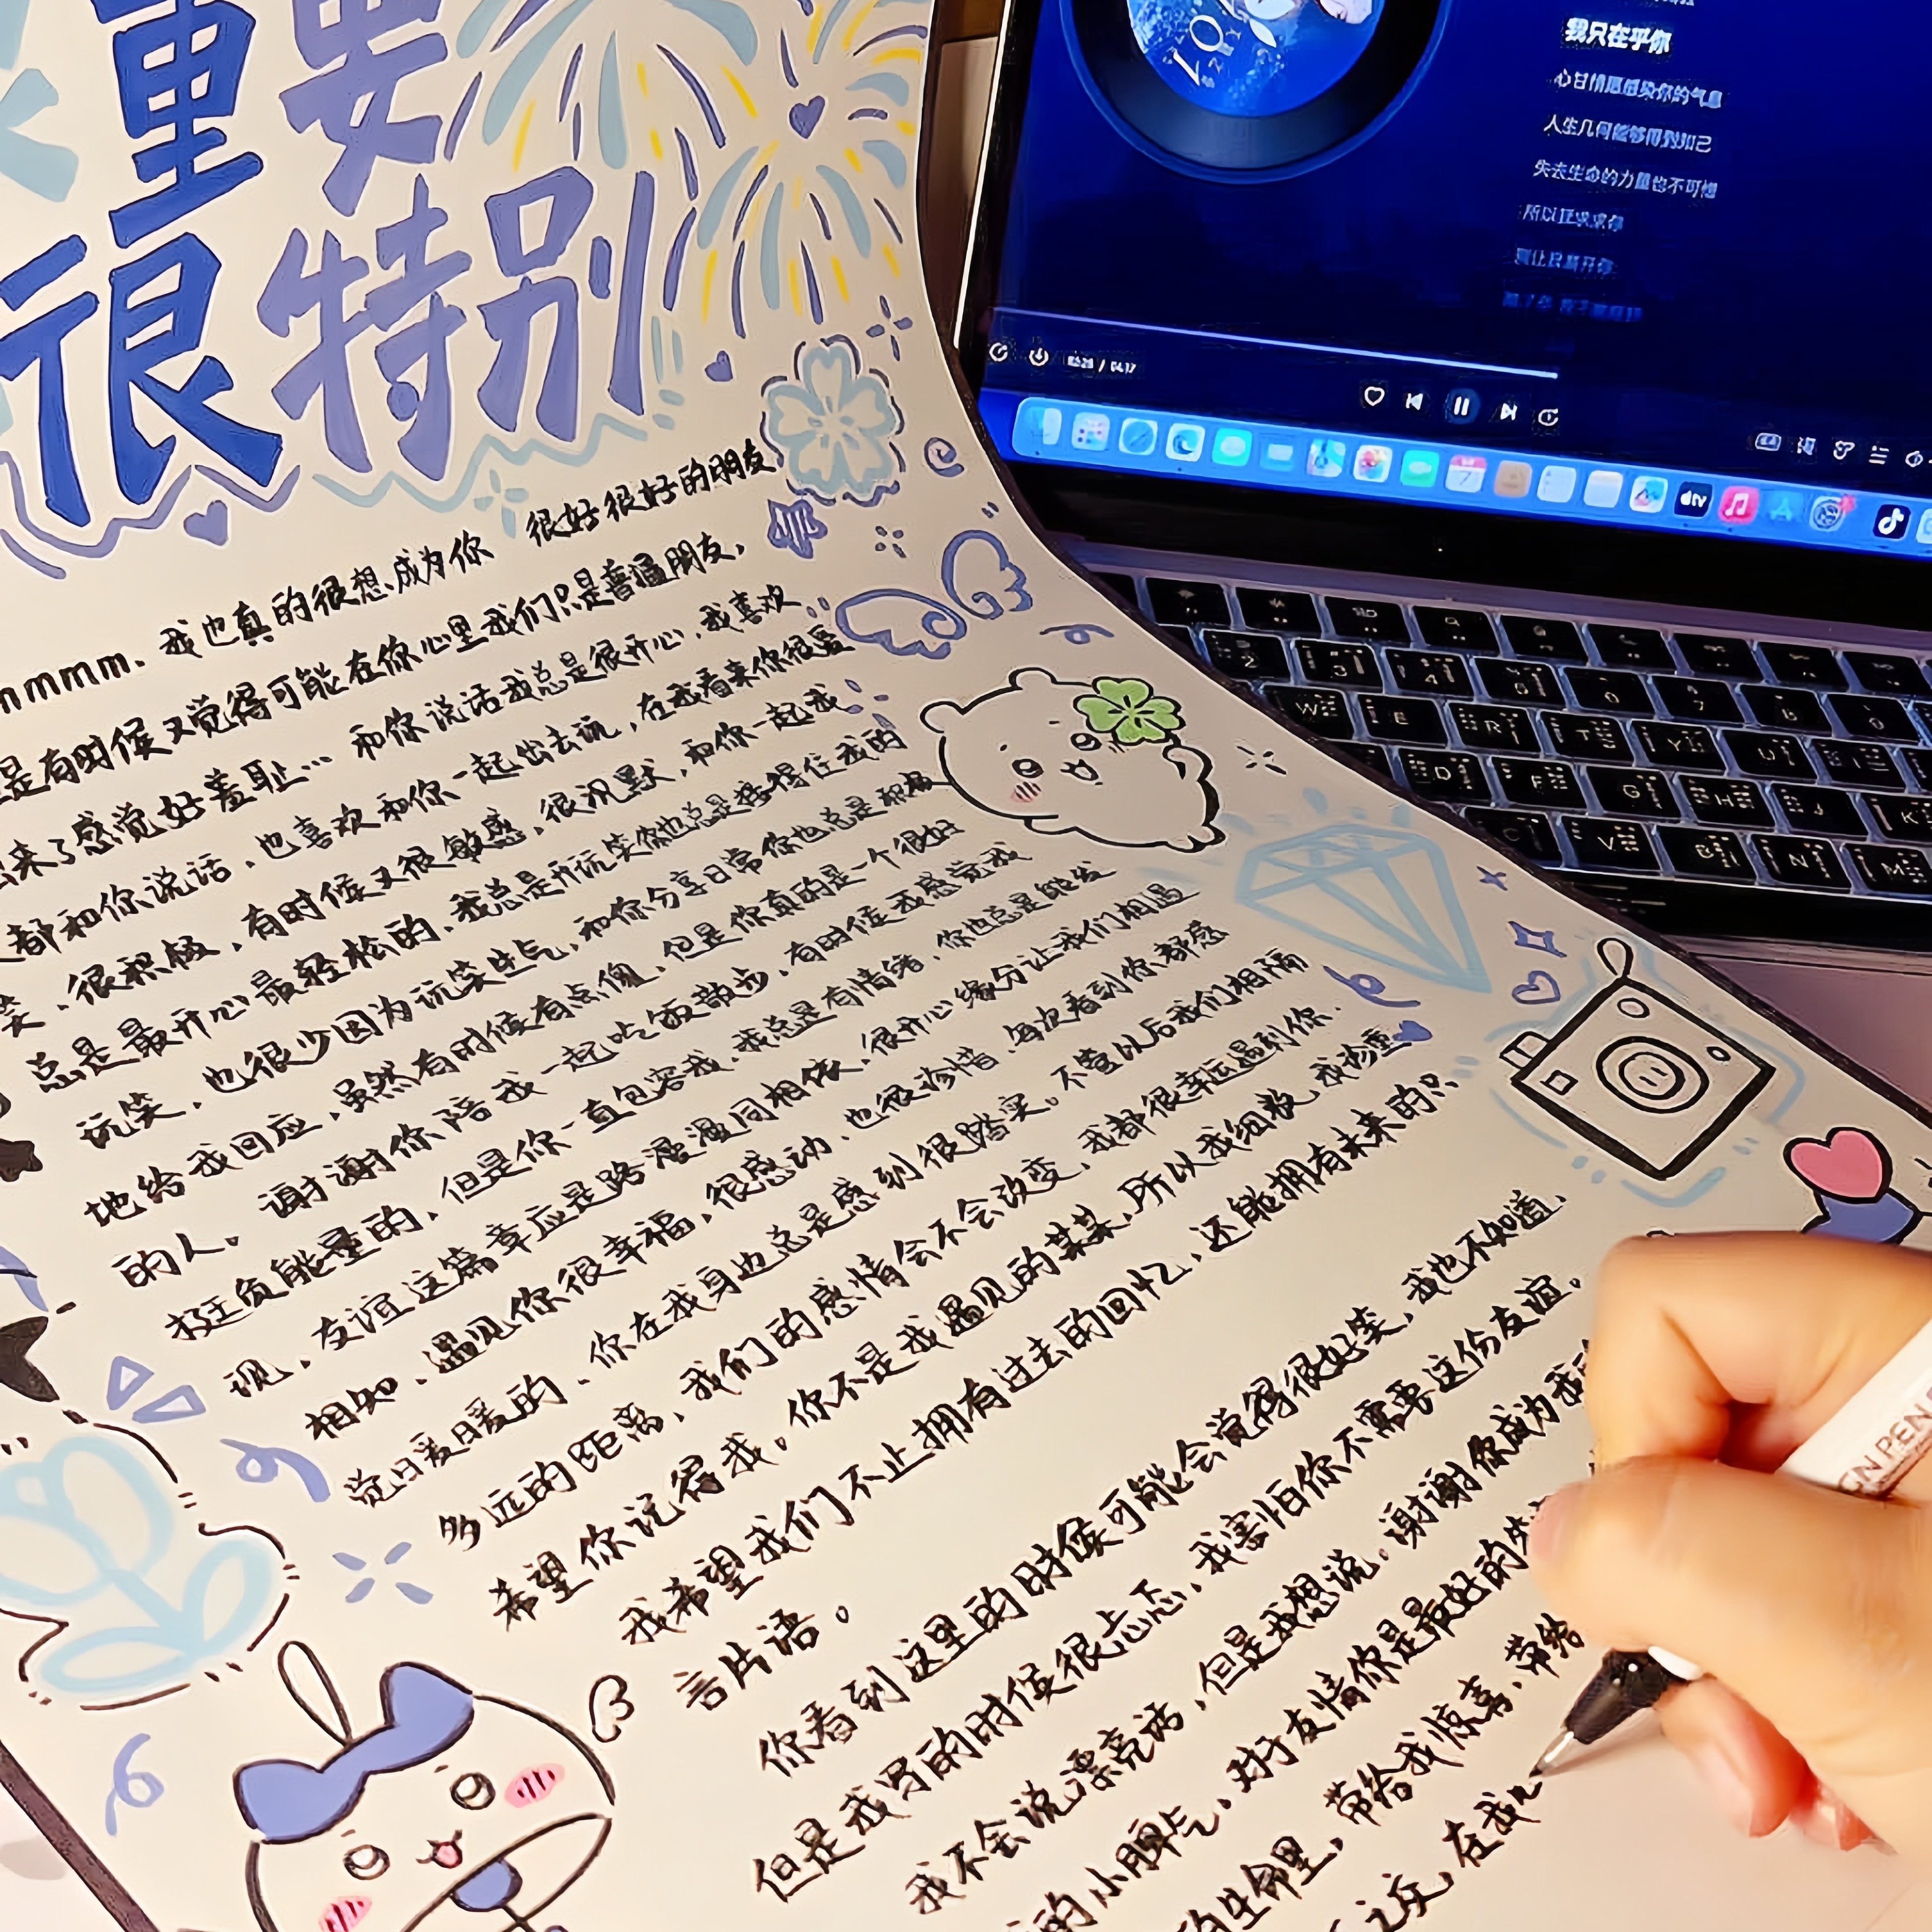 重要
很特别
mmmm、我也真的很想成为你 很好很好的朋友,
是有时候又觉得可能在你心里我们只是普通朋友,
来了感觉好羞耻… 和你说话我总是很开心,我喜欢
都和你说话、也喜欢和你一起出去玩,在我看来你很爱
笑、很积极、有时候又很敏感,很沉默,和你一起我
总是最开心最轻松的、我总是开玩笑你也总是接得住我的
玩笑、也很少因为玩笑生气,和你分享日常你也总是积极
地给我回应,虽然有时候有点傻,但是你真的是一个很好
的人。谢谢你陪我一起吃饭散步,有时候我感觉我
挺负能量的,但是你一直包容我、我总是有情绪,你也总是能发
现、友谊这篇章应是路漫漫同相依、很开心缘分让我们相遇
相知、遇见你很幸福,很感动、也很珍惜、每次看到你都感
觉日暖日暖的、你在我身边总是感到很踏实。不管以后我们相隔
多远的距离、我们的感情会不会改变,我都很幸运遇到你.
希望你记得我。你不是我遇见的某某,所以我细数,我珍重
我希望我们不止拥有过去的回忆,还能拥有未来的只
言片语。
你看到这里的时候可能会觉得很好笑,我也不知道.
但是我写的时候很忐忑、我害怕你不需要这份友谊.
我不会说漂亮话,但是我想说,谢谢你成为我
的小脾气,对于友情你是最好的
的生命里,带给我惊喜、带给
之交,在我
我只在乎你
心甘情愿感染你的气息
人生几何能够得到知己
失去生命的力量也不可惜
所以我求求你
别让我离开你
04:17
tv
W
E
R
T
Y
U
I
D
F
G
H
J
K
C
V
B
N
M
PEN